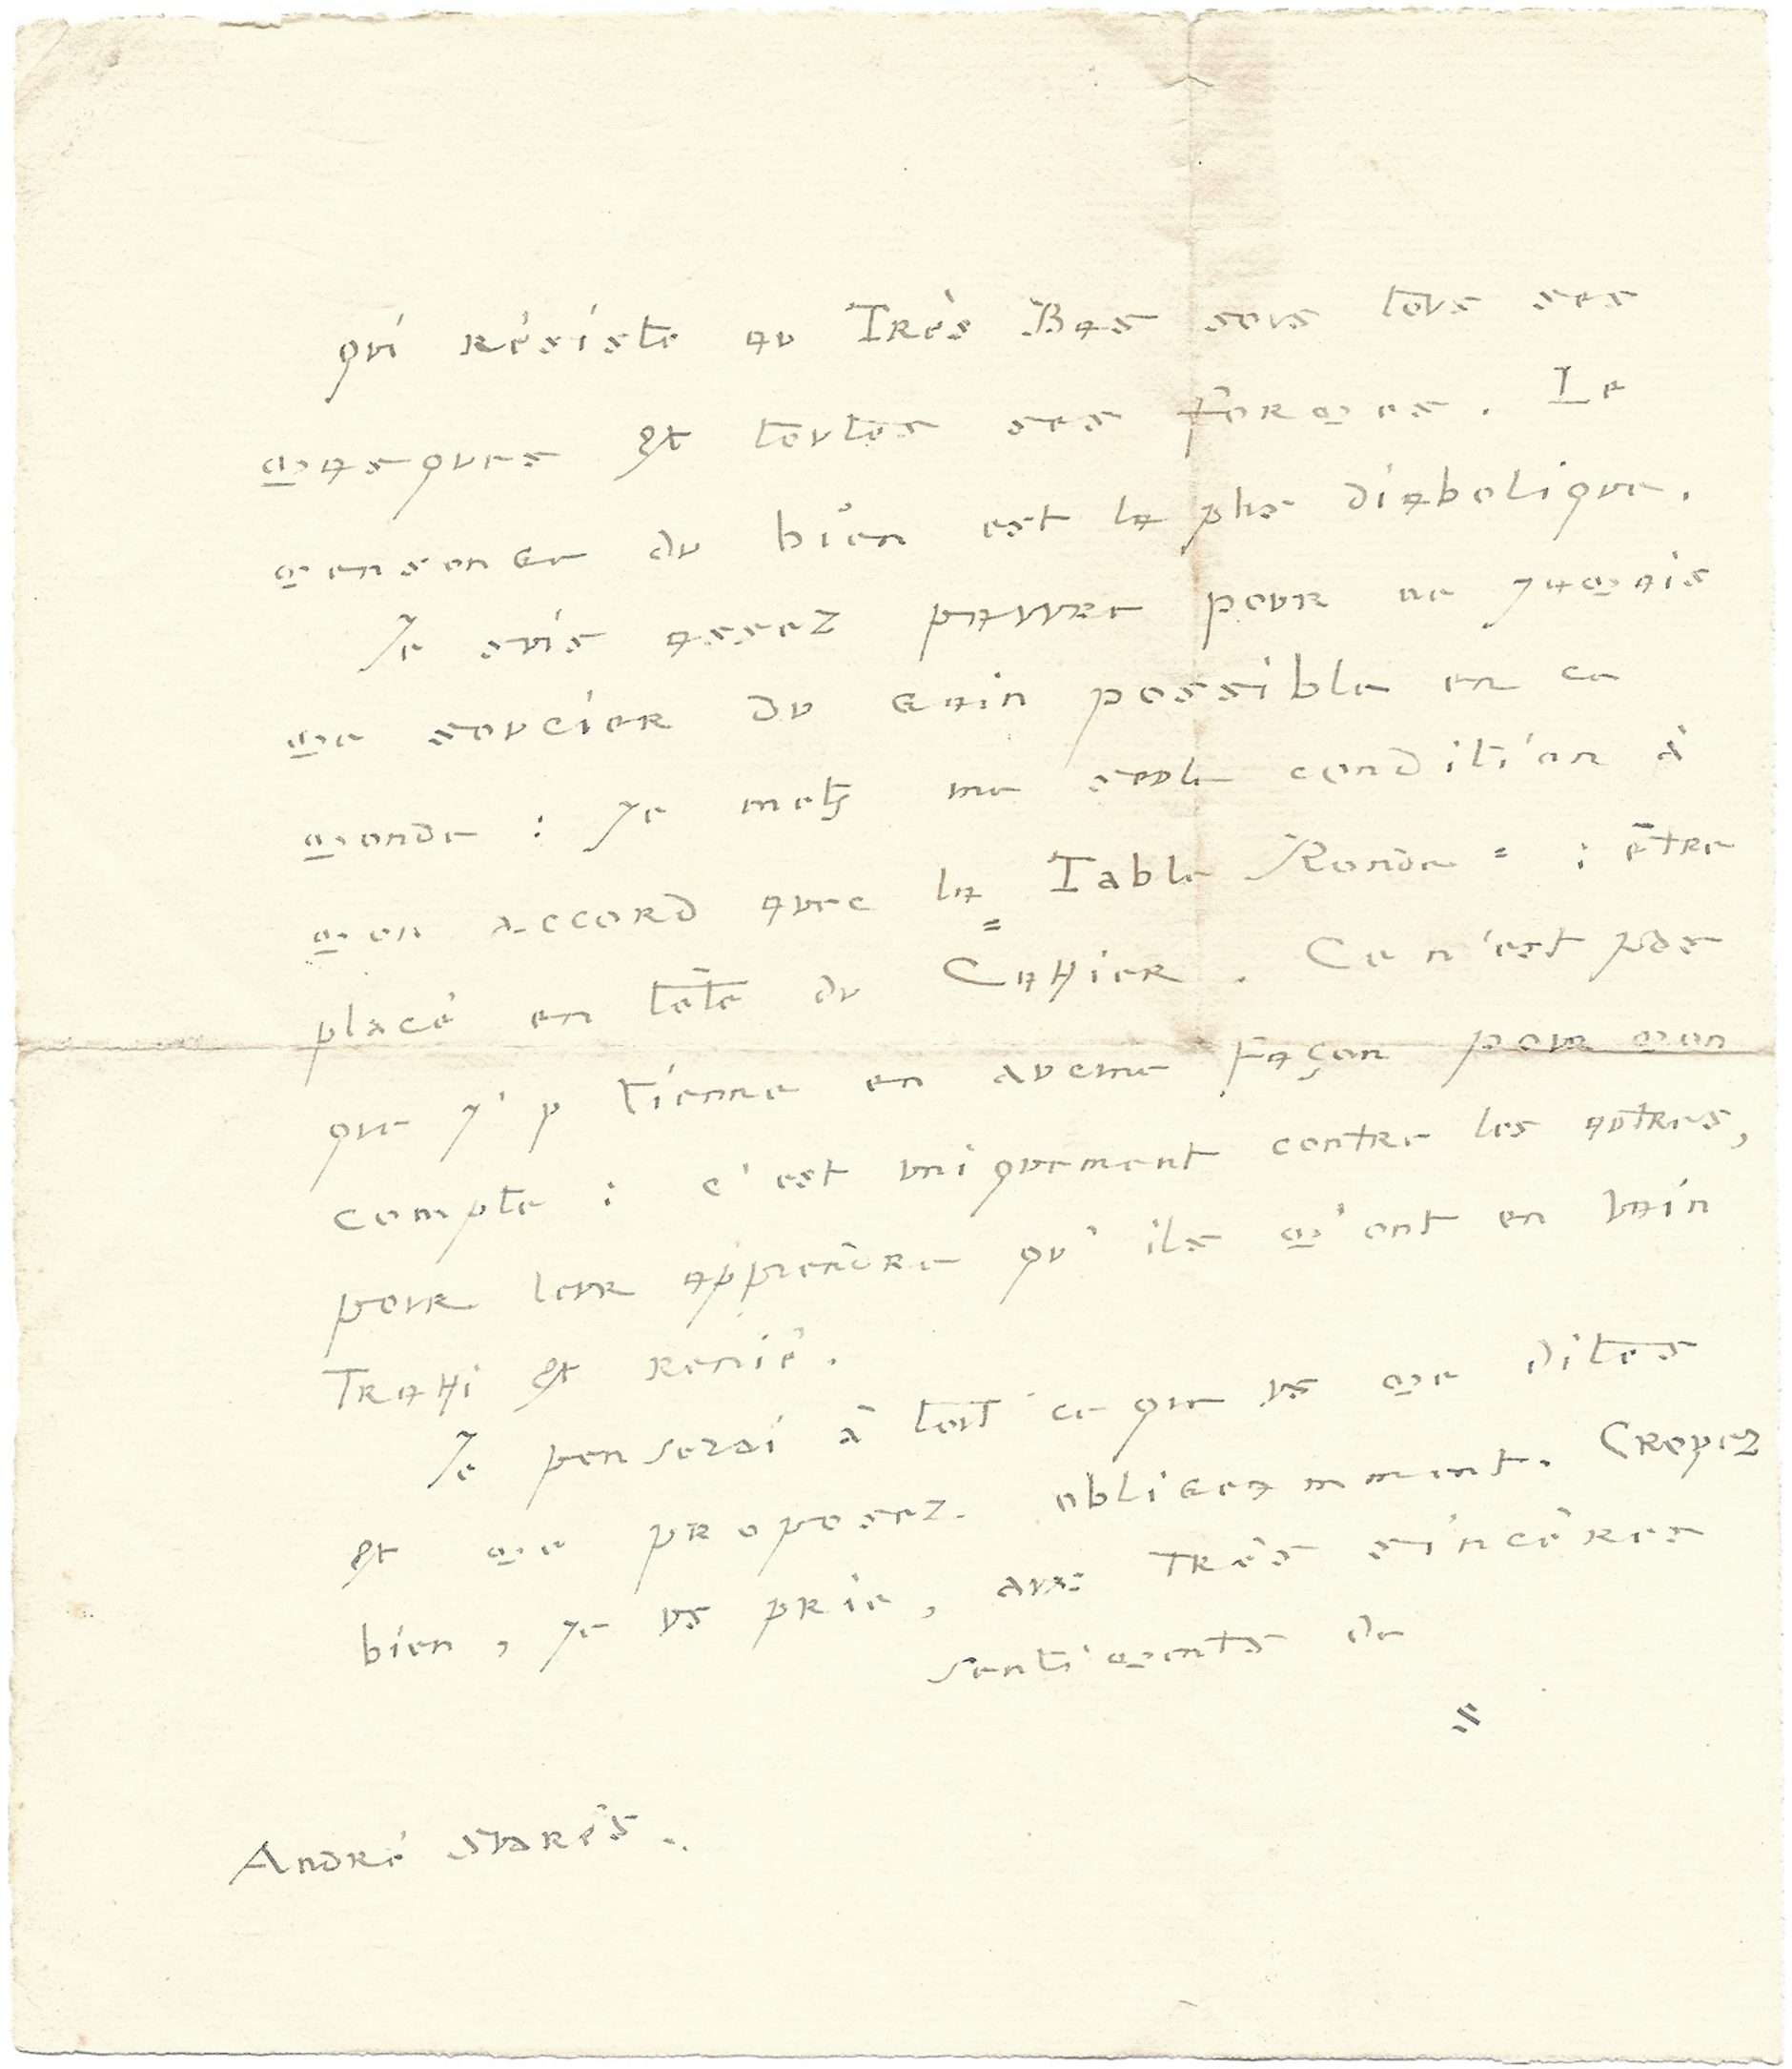 qui résiste au Très Bas sous tous ses
masques et toutes ses formes. Le
mensonge du bien est la plus diabolique.
Je suis assez pauvre pour ne jamais
me soucier du gain possible en ce
monde : je mets une seule condition à
mon accord avec la = Table Ronde = : être
placé en tête du Cahier. Ce n'est pas
que j'y tienne en aucune façon pour mon
compte : c'est uniquement contre les autres,
pour leur apprendre qu'ils m'ont en vain
trahi et renié.
Je penserai à tout ce que vs me dites
et me proposez obligeamment. Croyez
bien, je vs prie, aux très sincères
sentiments de
André Suarès.